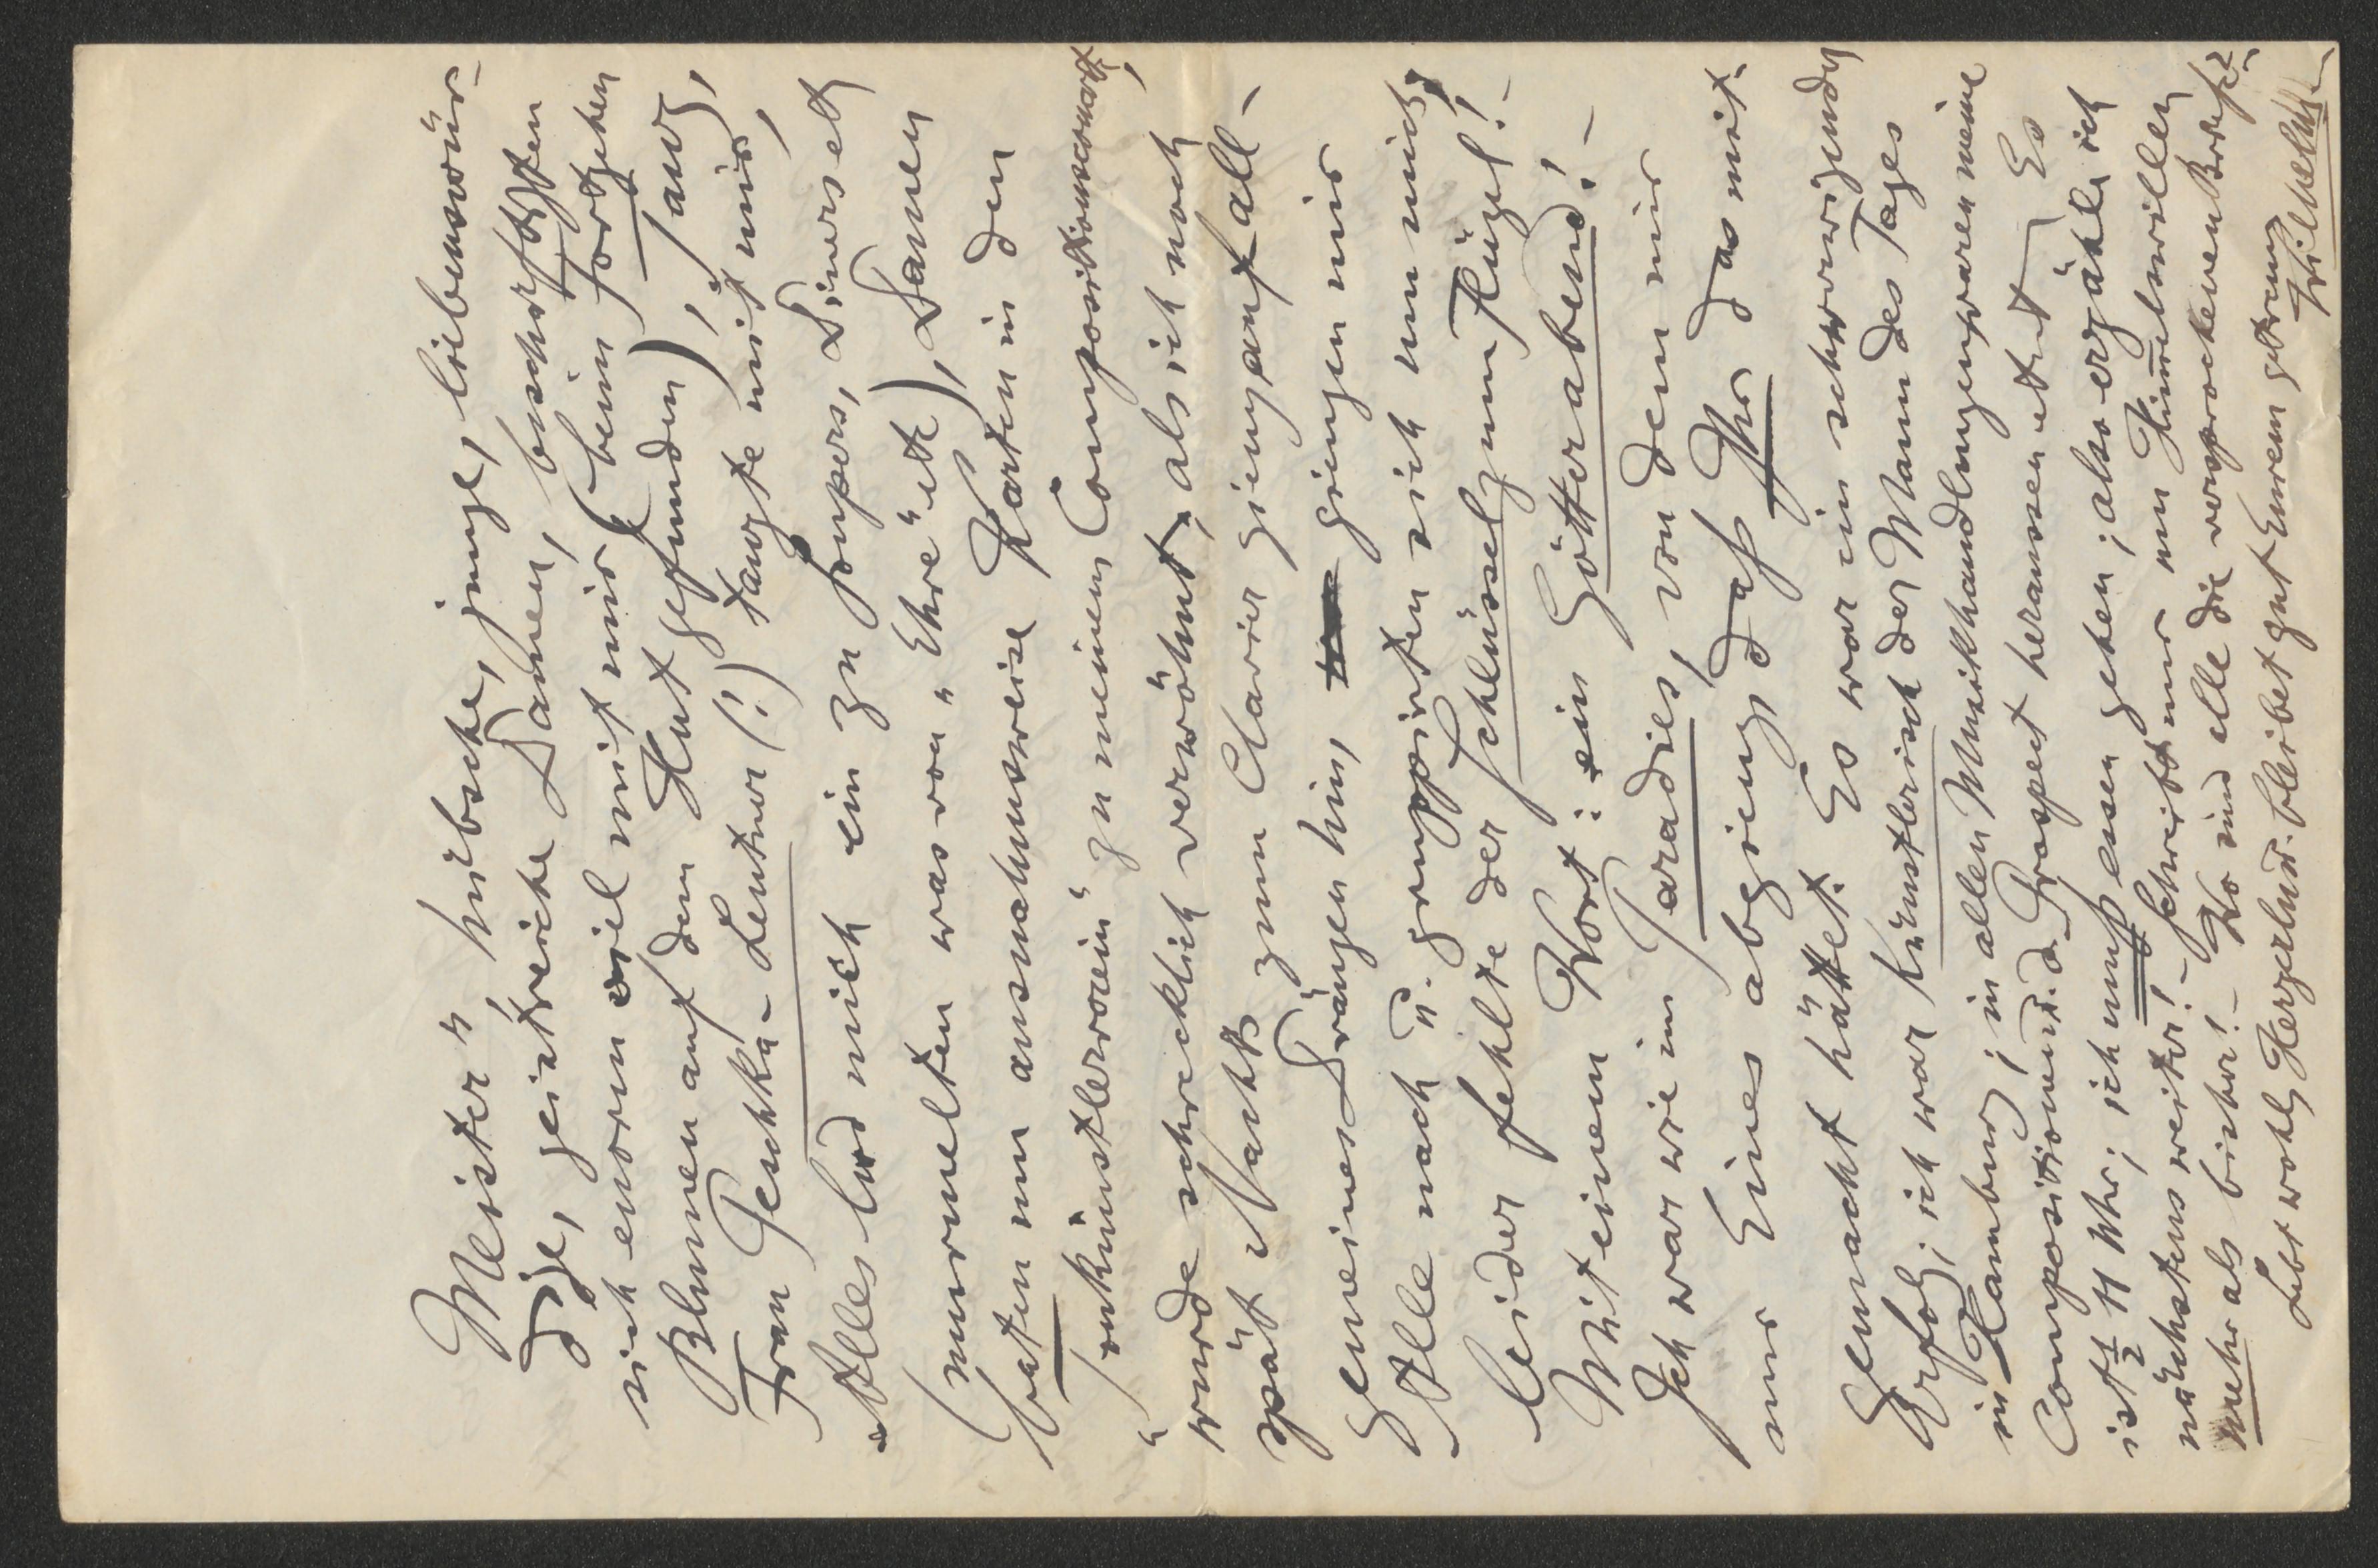 Meister", hübsche, junge, liebenswür-
dige, geistreiche Damen, beschäftigten
sich enorm viel mit mir (beim Fortgehen
Blumen auf dem Hut gefunden), sang,
Frau Peschka-Leutner (!) tanzte mit mir,
Alles lud mich ein zu soupers, Diners etc
(murmelten was von "Ehre" etc), Damen
baten um ausnahmsweise Karten in den
"Tonkünstlerverein" zu meinem Compositionsvortr,
wurde schrecklich verwöhnt, als ich noch
spät Nachts zum Clavier gieng auf all-
gemeines Drängen hin, giengen mir
Alle nach u. gruppirten sich um mich,
leider fehlte der Schlüssel zum Flügel! –
Mit einem Wort: ein Götterabend! –
Ich war wie im Paradies, von dem mir
nur Eines abgieng, daß Ihr das mit-
gemacht hättet. Es war ein schwerwiegender
Erfolg; ich war künstlerisch der Mann des Tages
in Hamburg; in allen Musikhandlungen waren meine
Compositionen u. d. Prospect heraussen etc etc Es
ist ½ 11 Uhr; ich muß essen gehen; also erzähle ich
nächstens weiter! – Schreibt mir um Himelswillen
mehr als bisher! – Wo sind alle die versprochenen Briefe?
Lebt wohl, Herzerln u. bleibet gut Eurem getreuen